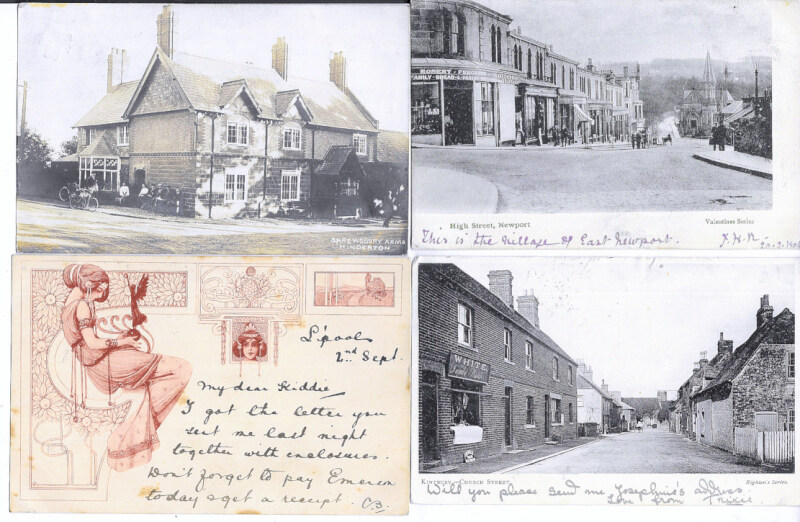 SHREWSBURY ARMS
HINDERTON
ROBERT
FAMILY BREAD &
High Street, Newport
Valentines Series
This is the village of East Newport.
L'pool
2nd Sept.
My dear Kiddie
I got the letter you
sent me last night
together with enclosures.
Don't forget to pay Emerson
today & get a receipt. C.B.
WHITE
KINTBURY—CHURCH STREET.
Will you please send me Josephine's address.
Love from Trixie